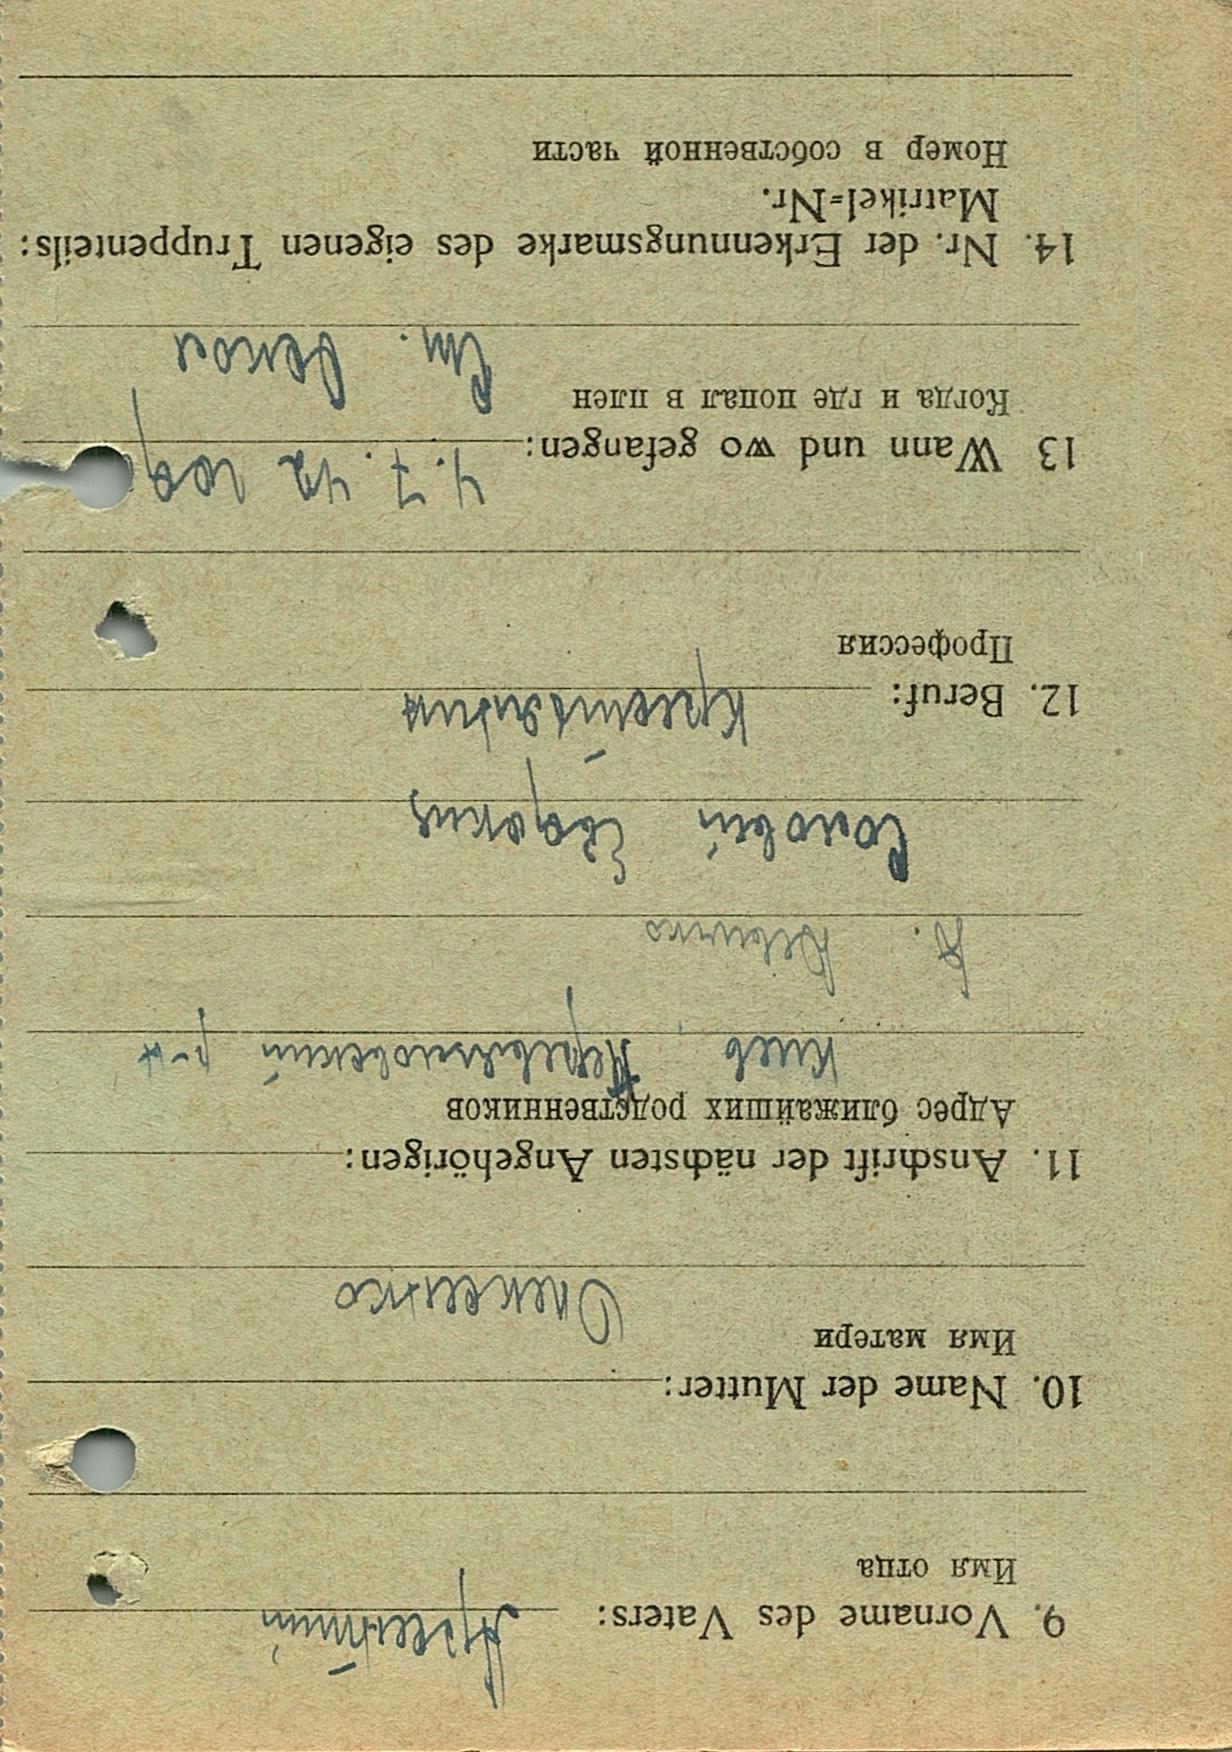 9. Vorname des Vaters:
Имя отца
10. Name der Mutter:
Имя матери
Олексенко
11. Anschrift der nächsten Angehörigen:
Адрес ближайших родственников
Киев, р-н
с.
Соловей Евдокия
12. Beruf: Крестьянин
Профессия
13 Wann und wo gefangen: 4. 7. 42 год
Когда и где попал в плен
Ст.
14. Nr. der Erkennungsmarke des eigenen Truppenteils:
Matrikel=Nr.
Номер в собственной части